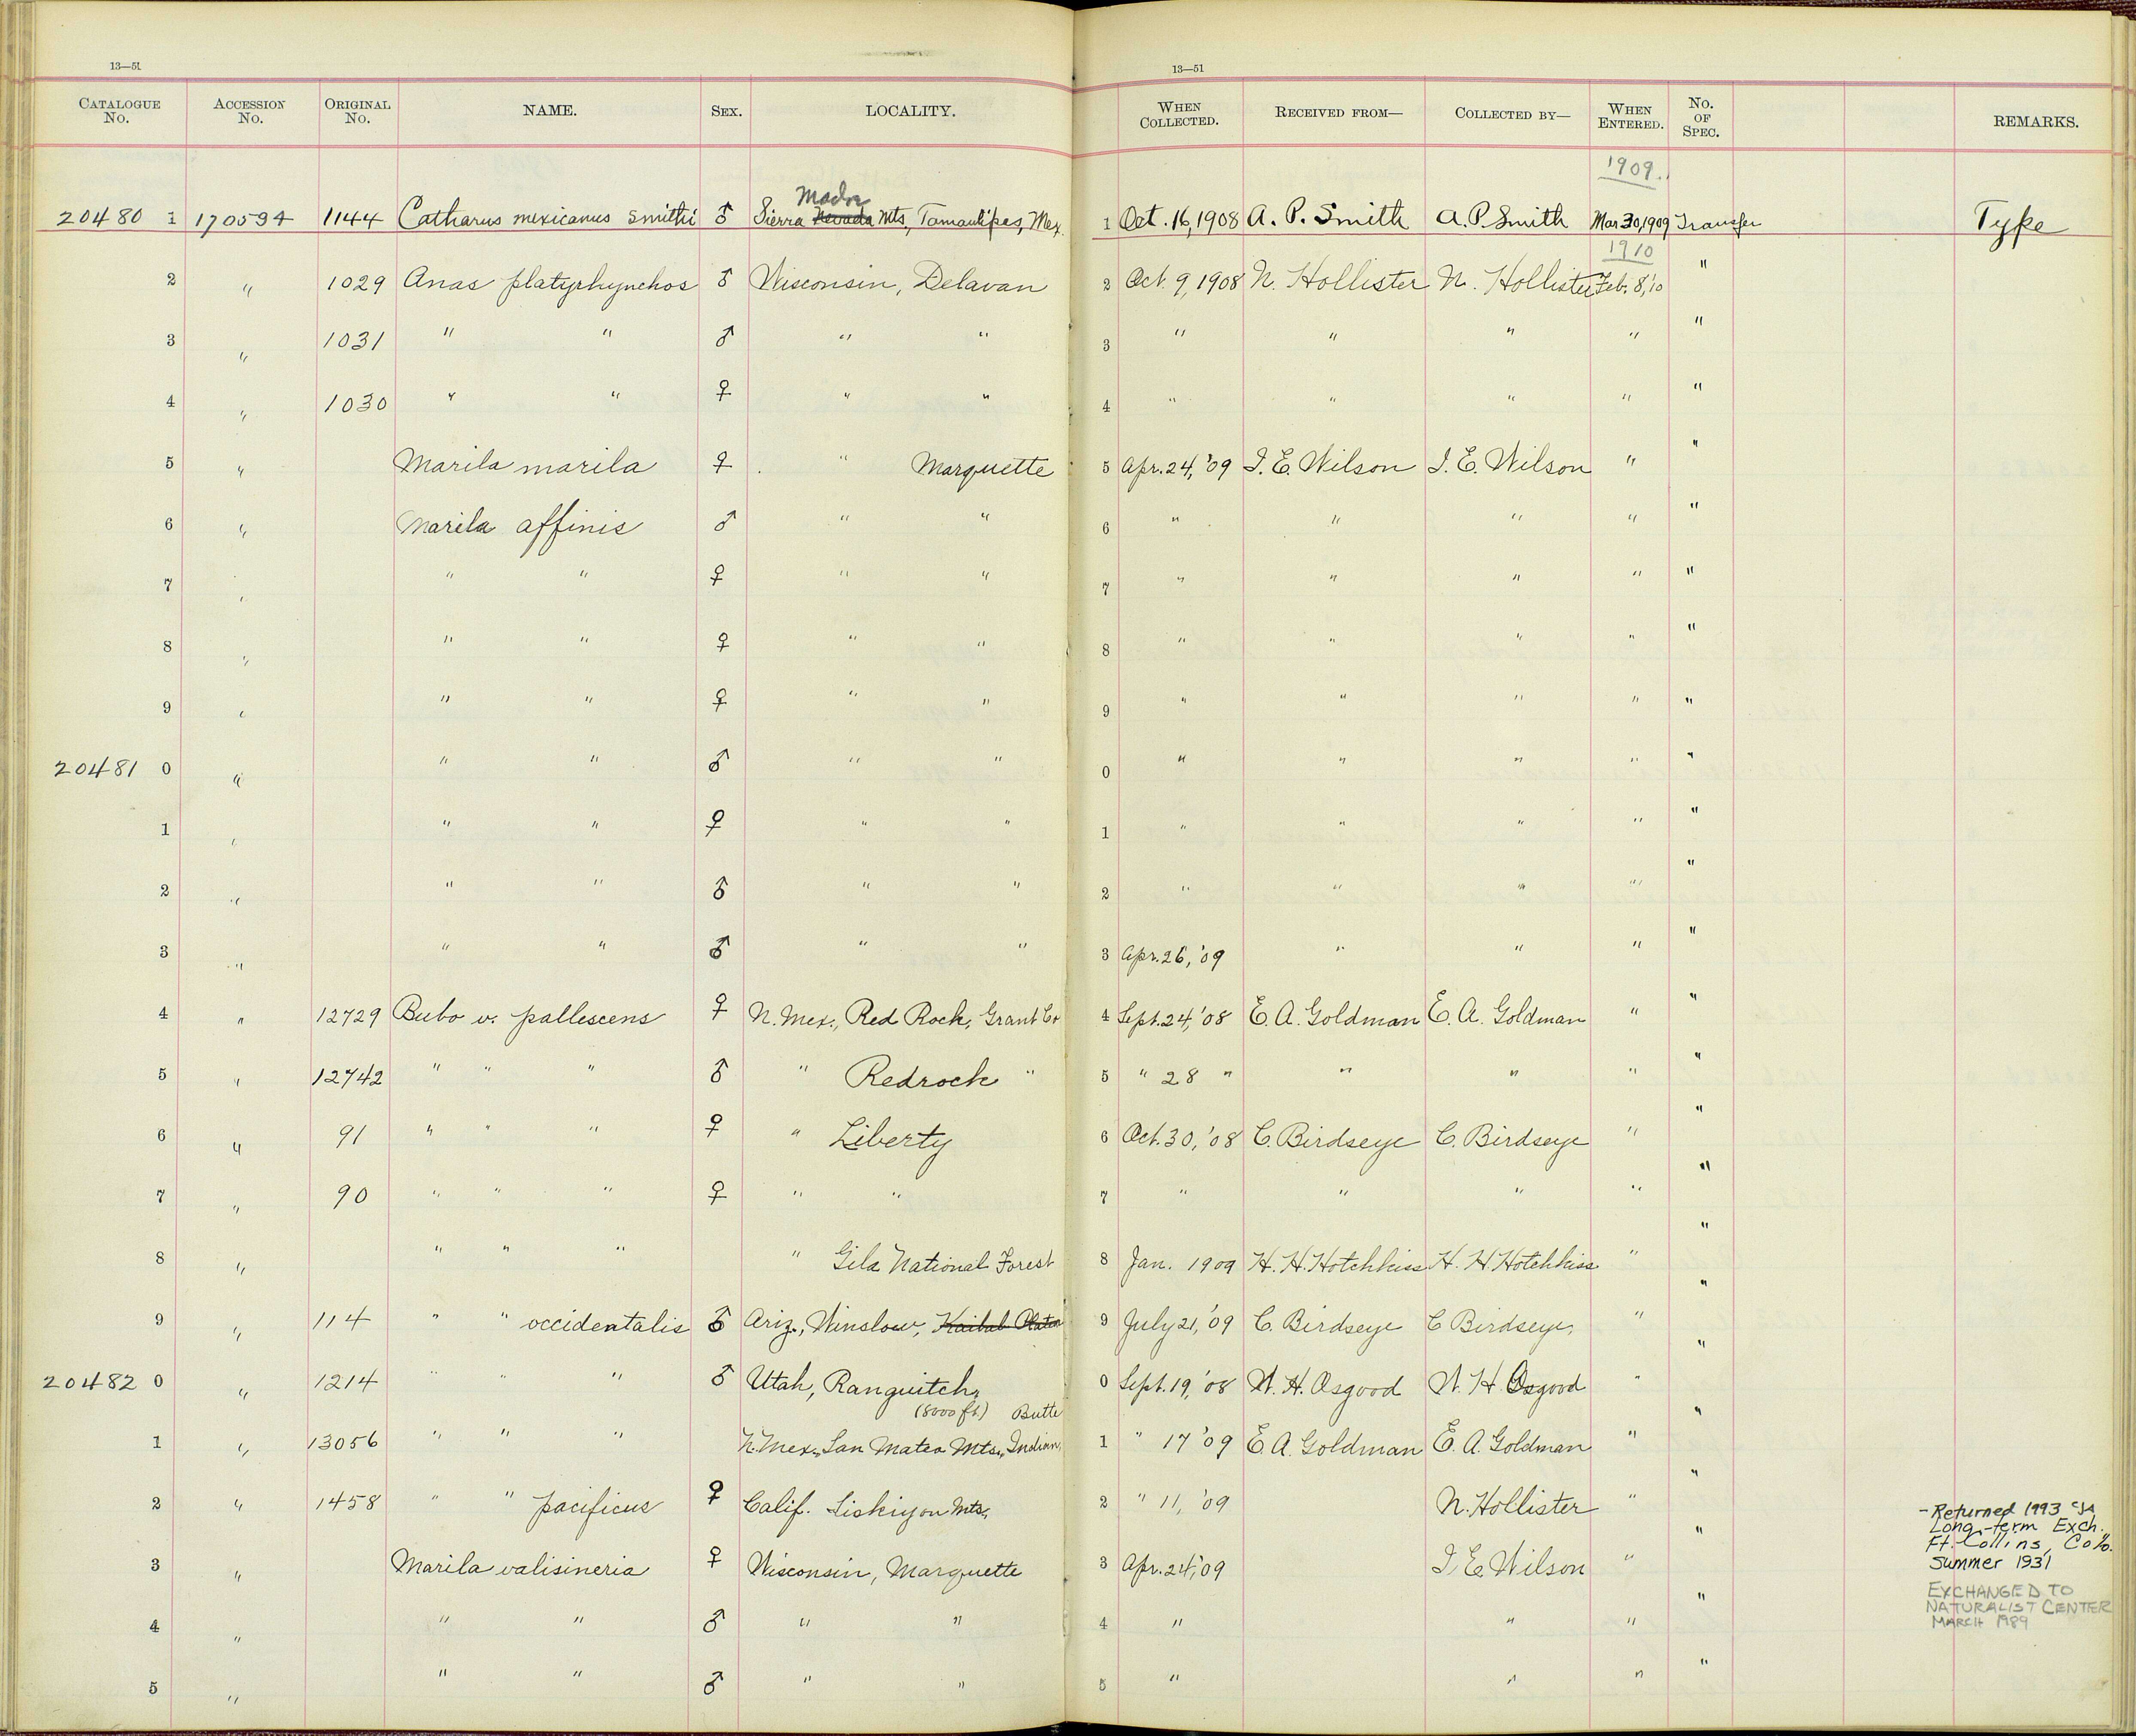 13—51
13—51
CATALOGUE No. ACCESSION No. ORIGINAL No. NAME. SEX. LOCALITY. WHEN COLLECTED. RECEIVED FROM— COLLECTED BY— WHEN ENTERED. No. OF SPEC. REMARKS.
1909.
Madre
20480 1 170594 1144 Catharus mexicanus smithi ♂ Sierra Nevada Mts., Tamaulipas, Mex. 1 Oct. 16, 1908 A. P. Smith A. P. Smith Mar 30, 1909 Transfer Type
1910
2 " 1029 Anas platyrhynchos ♂ Wisconsin, Delavan 2 Oct. 9, 1908 N. Hollister N. Hollister Feb. 8, '10 "
3 " 1031 " " ♂ " " 3 " " " " "
4 " 1030 " " ♀ " " 4 " " " " "
5 " Marila marila ♀ " Marquette 5 Apr. 24, '09 I. E. Wilson I. E. Wilson " "
6 " Marila affinis ♂ " " 6 " " " " "
7 " " " ♀ " " 7 " " " " "
8 " " " ♀ " " 8 " " " " "
9 " " " ♀ " " 9 " " " " "
20481 0 " " " ♂ " " 0 " " " " "
1 " " " ♀ " " 1 " " " " "
2 " " " ♂ " " 2 " " " " "
3 " " " ♂ " " 3 Apr. 26, '09 " " " "
4 " 12729 Bubo v. pallescens ♀ N. Mex., Red Rock, Grant Co 4 Sept. 24, '08 E. A. Goldman E. A. Goldman " "
5 " 12742 " " " ♂ " Redrock " 5 " 28 " " " " "
6 " 91 " " " ♀ " Liberty 6 Oct. 30, '08 C. Birdseye C. Birdseye " "
7 " 90 " " " ♀ " " 7 " " " " "
8 " " " " " Gila National Forest 8 Jan. 1909 H. H. Hotchkiss H. H Hotchkiss " "
9 " 114 " " occidentalis ♂ Ariz., Winslow, Kaibab Plateau 9 July 21, '09 C. Birdseye C Birdseye, " "
20482 0 " 1214 " " " ♂ Utah, Panguitch, 0 Sept. 19, '08 W. H. Osgood W. H Osgood " "
(8000 ft.) Butte
1 " 13056 " " " N. Mex., San Mateo Mts., Indian, 1 " 17 '09 E A. Goldman E. A. Goldman " "
2 " 1458 " " pacificus ♀ Calif. Siskiyou Mts, 2 " 11, '09 N. Hollister " "
- Returned 1993
Long-term Exch.
Ft. Collins, Colo.
Summer 1931
3 " Marila valisineria ♀ Wisconsin, Marquette 3 Apr. 24, '09 I E Wilson " "
EXCHANGED TO
NATURALIST CENTER
MARCH 1989
4 " " " ♂ " " 4 " " " "
5 " " " ♂ " " 5 " " " "